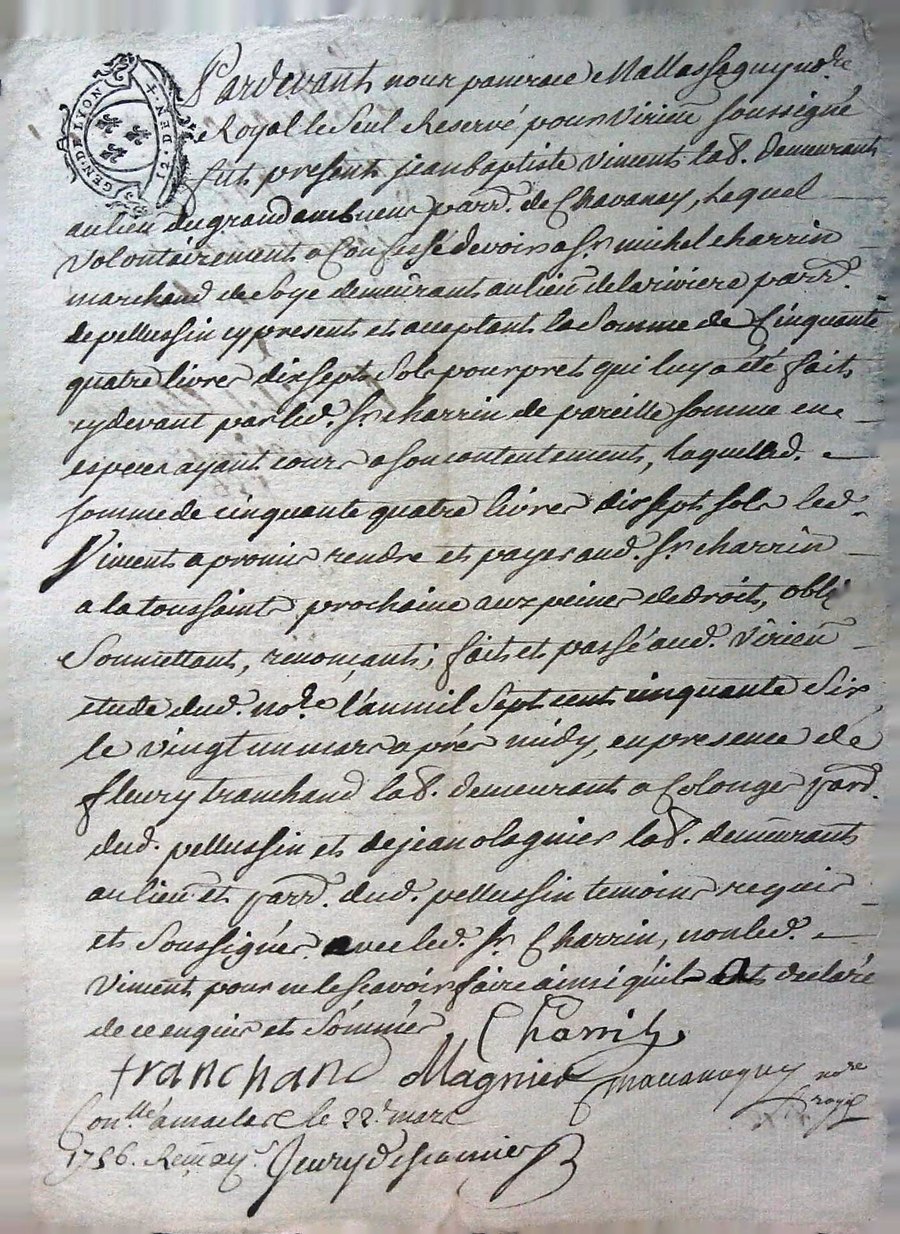 GEN. DE LYON 12. DEN.
Pardevant nous pancrace Mallassaguy no.re
Royal le Seul Reservé pour Virieu soussigné
fut present jean baptiste Viment lab. demeurant
au lieu du grand embuent parr. de Chavanay, Lequel
Volontairement a Confessé devoir a Sr. michel charrin
marchand de Soye demeurant au lieu de la riviere parr.
de pellussin cy present et acceptant la Somme de Cinquante
quatre livres dix sept Sols pour pret qui luy a été fait
cy devant par led. Sr. charrin de pareille somme en
especes ayant cours a son contentement, laquelle d.
somme de cinquante quatre livres dix sept sols led.
Viment a promis rendre et payer aud. Sr. charrin
a la toussaint prochaine aux peines de droit, obli
Soumettant, renonçant; fait et passé aud. Virieu
etude dud. no.re l'an mil Sept cent cinquante Six
le vingt un mars aprés midy, en presence de
fleury tranchand lab. demeurant a Colonges parr.
dud. pellussin et de jean olagnier lab. demeurant
au lieu et parr. dud. pellussin temoins requis
et Soussignés avec led. Sr. Charrin, non led.
Viment pour ne le scavoir faire ainsi qu'il a declaré
de ce enquis et Sommés Charrin
tranchand olagnier no.re
Con.lle a maclas le 22.e mars
1756. Reçu